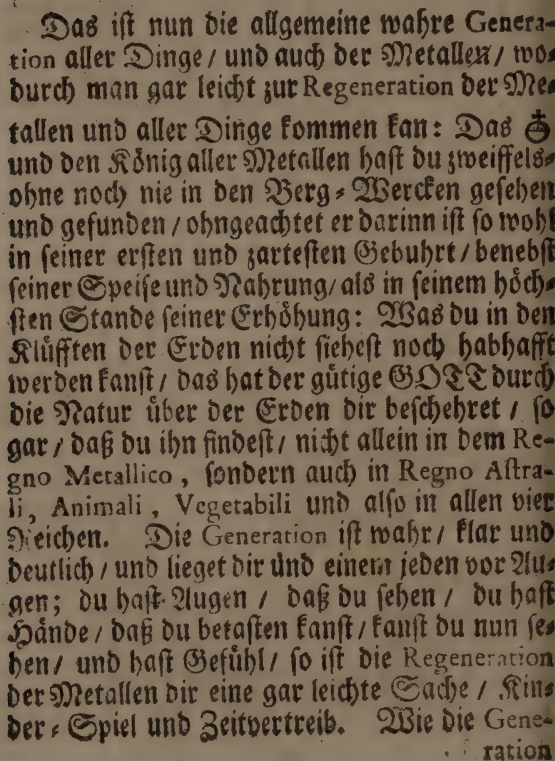 Das iſt nun die allgemeine wahre Genera-
tion aller Dinge / und auch der Metallen / wo-
durch man gar leicht zur Regeneration der Me-
tallen und aller Dinge kommen kan: Das
und den König aller Metallen haſt du zweiffels-
ohne noch nie in den Berg-Wercken geſehen
und gefunden / ohngeachtet er darinn iſt ſo wohl
in ſeiner erſten und zarteſten Gebuhrt / benebſt
ſeiner Speiſe und Nahrung / als in ſeinem höch-
ſten Stande ſeiner Erhöhung: Was du in den
Klüfften der Erden nicht ſieheſt noch habhafft
werden kanſt / das hat der gütige GOTT durch
die Natur über der Erden dir beſchehret / ſo
gar / daß du ihn findeſt / nicht allein in dem Re-
gno Metallico, ſondern auch in Regno Aſtra-
li, Animali, Vegetabili und alſo in allen vier
Reichen. Die Generation iſt wahr / klar und
deutlich / und lieget dir und einem jeden vor Au-
gen; du haſt Augen / daß du ſehen / du haſt
Hände / daß du betaſten kanſt / kanſt du nun ſe-
hen / und haſt Gefühl / ſo iſt die Regeneration
der Metallen dir eine gar leichte Sache / Kin-
der-Spiel und Zeitvertreib. Wie die Gene-
ration